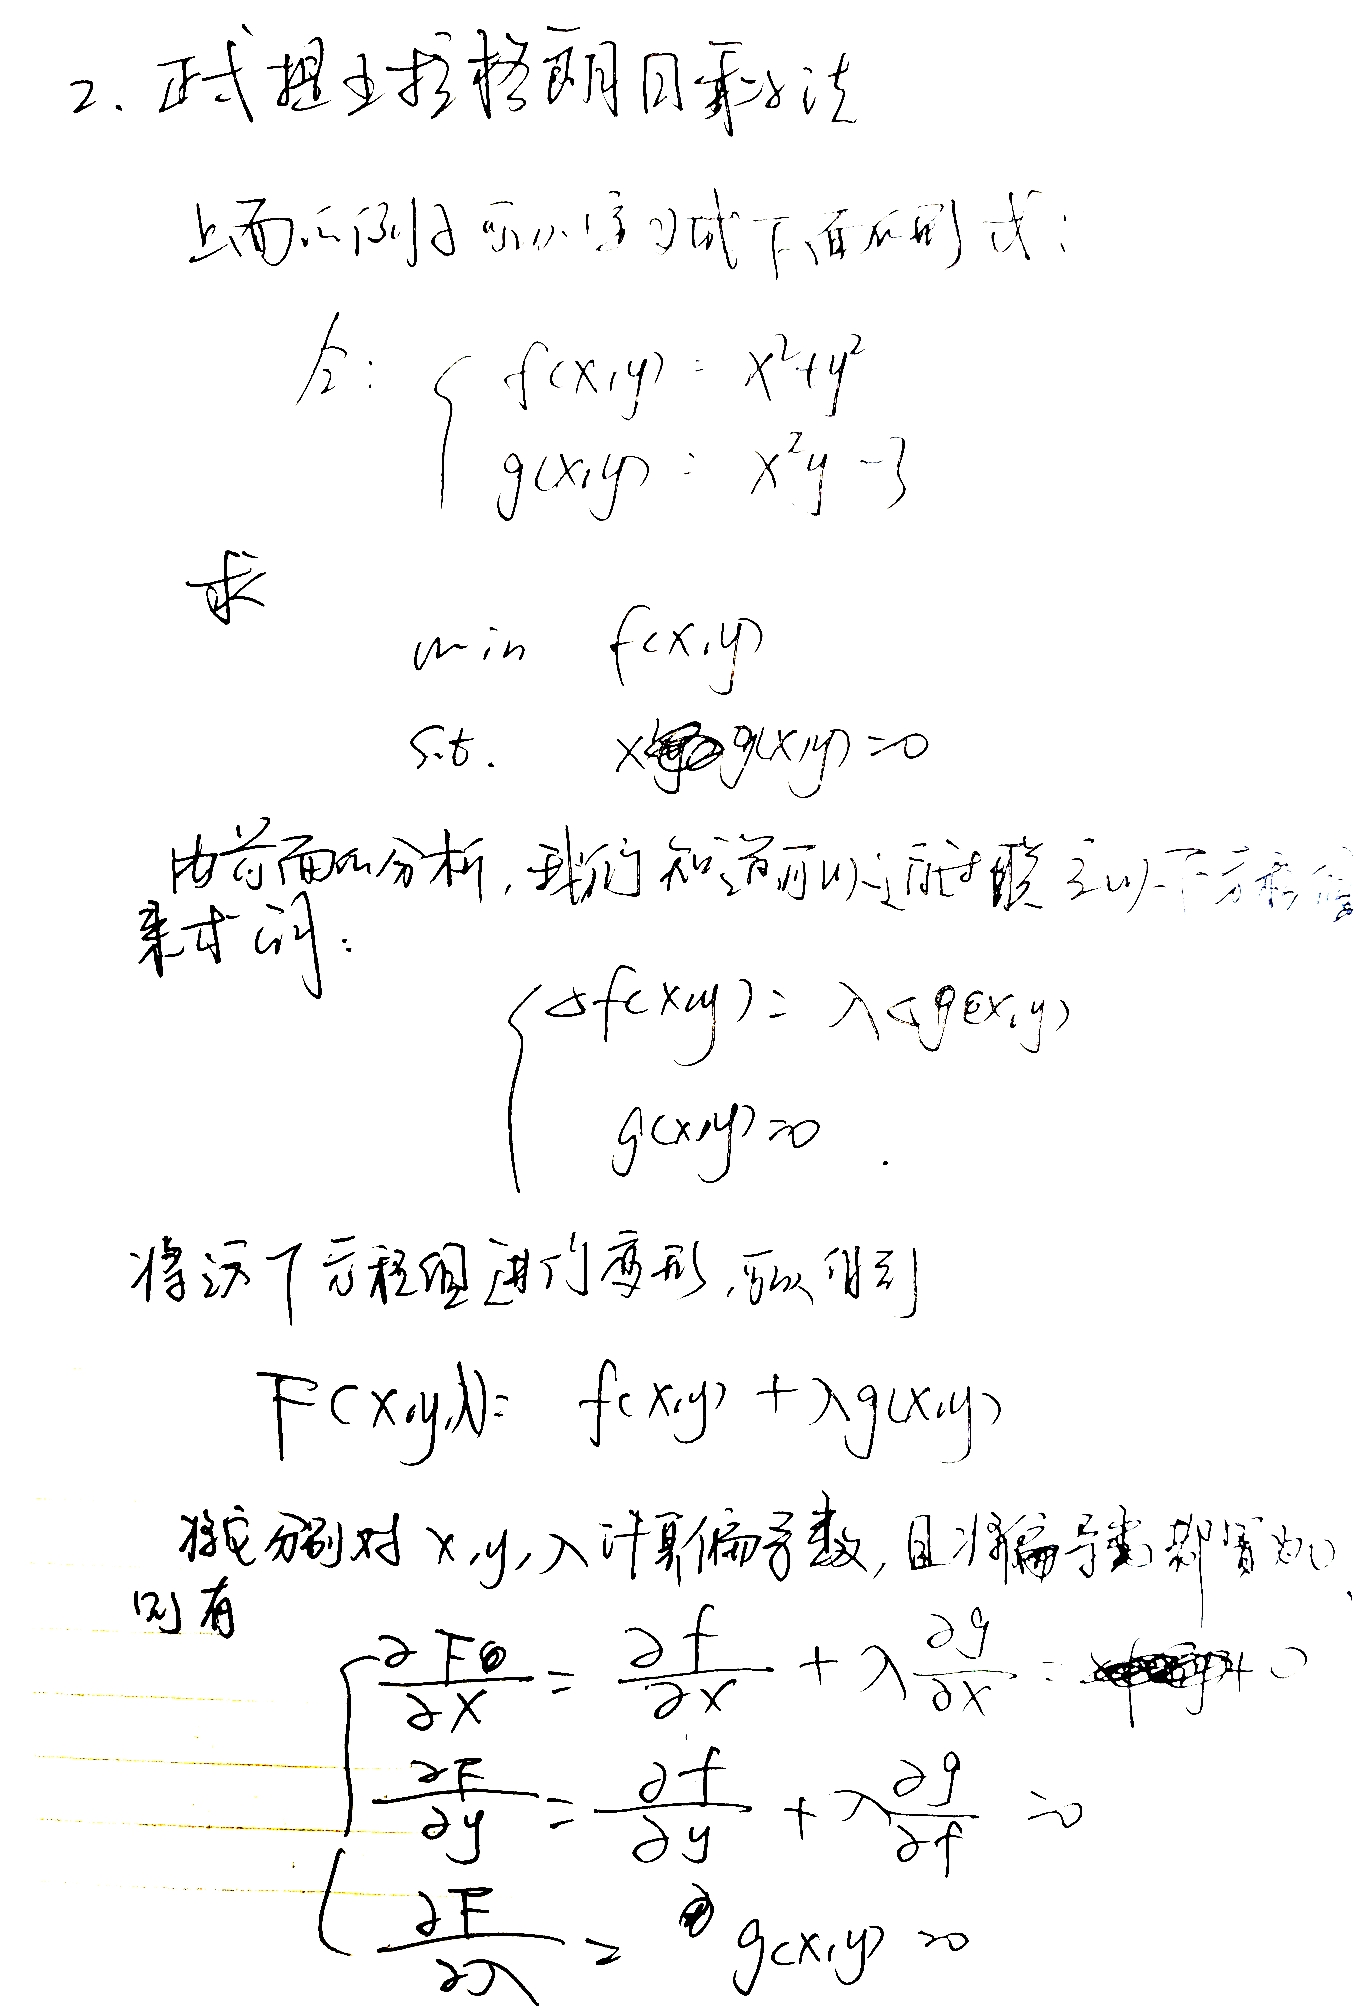 2. 正式提出拉格朗日乘子法
上面的例子可以写成下面的形式:
令: { f(x,y) = x²+y²
g(x,y) = x²y-3
求
min f(x,y)
s.t. x g(x,y)=0
由前面的分析,我们知道可以通过联立以下方程组
来求解:
{ ▵f(x,y) = λ▵g(x,y)
g(x,y)=0.
将这个方程组进行变形,可以得到
F(x,y,λ)= f(x,y) + λg(x,y)
将它分别对 x,y,λ 计算偏导数,且将偏导数都置为0,
则有
{ ∂F/∂x = ∂f/∂x + λ ∂g/∂x = 0
∂F/∂y = ∂f/∂y + λ ∂g/∂f = 0
∂F/∂λ = g(x,y) = 0